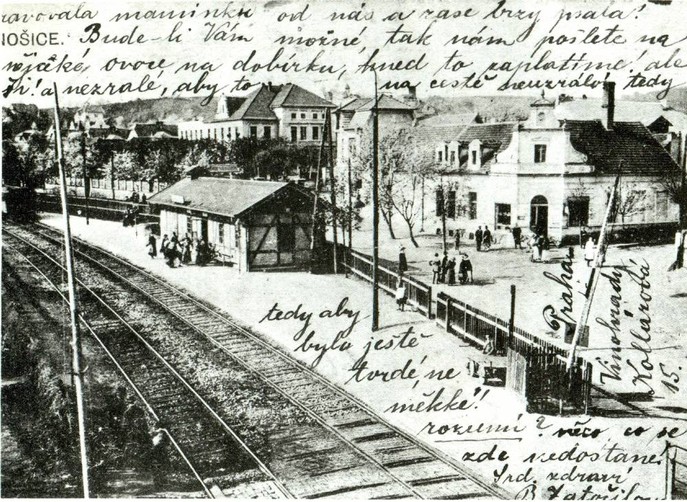 navovala maminku od nás a zase brzy psala!
NOŠICE. Bude-li Vám možné, tak nám pošlete na
nějaké ovoce na dobírku, hned to zaplatíme, ale
ne! a nezralé, aby to na cestě neuzrálo, tedy
tedy aby
bylo ještě
tvrdé, ne
měkké!
rozumí? něco co se
zde nedostane!
Srd. zdraví
Praha
Vinohrady
Kollárová
15.